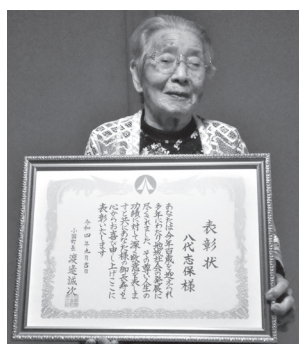 表彰状
八代志保 様
あなたは今年百歳を迎えられ
多年にわたり地域社会の発展に
尽されました その尊い人生の
功績に対して深く敬意を表しま
すと共にあなた様の御長寿を
心からお喜び申し上げここに
表彰いたします
令和四年
渡邉誠次